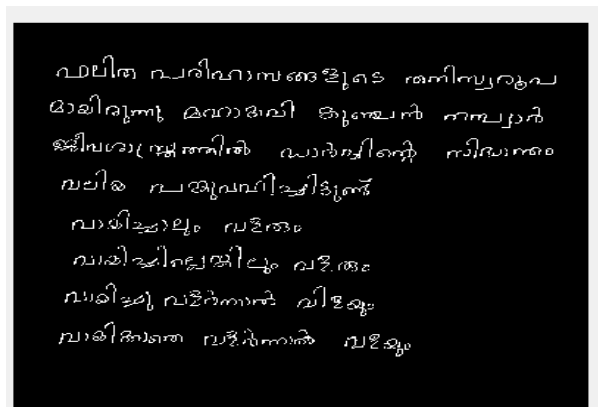 ഫലിത പരിഹാസങ്ങളുടെ തനിസ്വരൂപ
മായിരുന്നു മഹാകവി കുഞ്ചൻ നമ്പ്യാർ
ജീവശാസ്ത്രത്തിൽ ഡാർവ്വിന്റെ സിദ്ധാന്തം
വലിയ പങ്കുവഹിച്ചിട്ടുണ്ട്
വായിച്ചാലും വളരും
വായിച്ചില്ലെങ്കിലും വളരും
വായിച്ചു വളർന്നാൽ വിളയും
വായിക്കാതെ വളർന്നാൽ വളയും